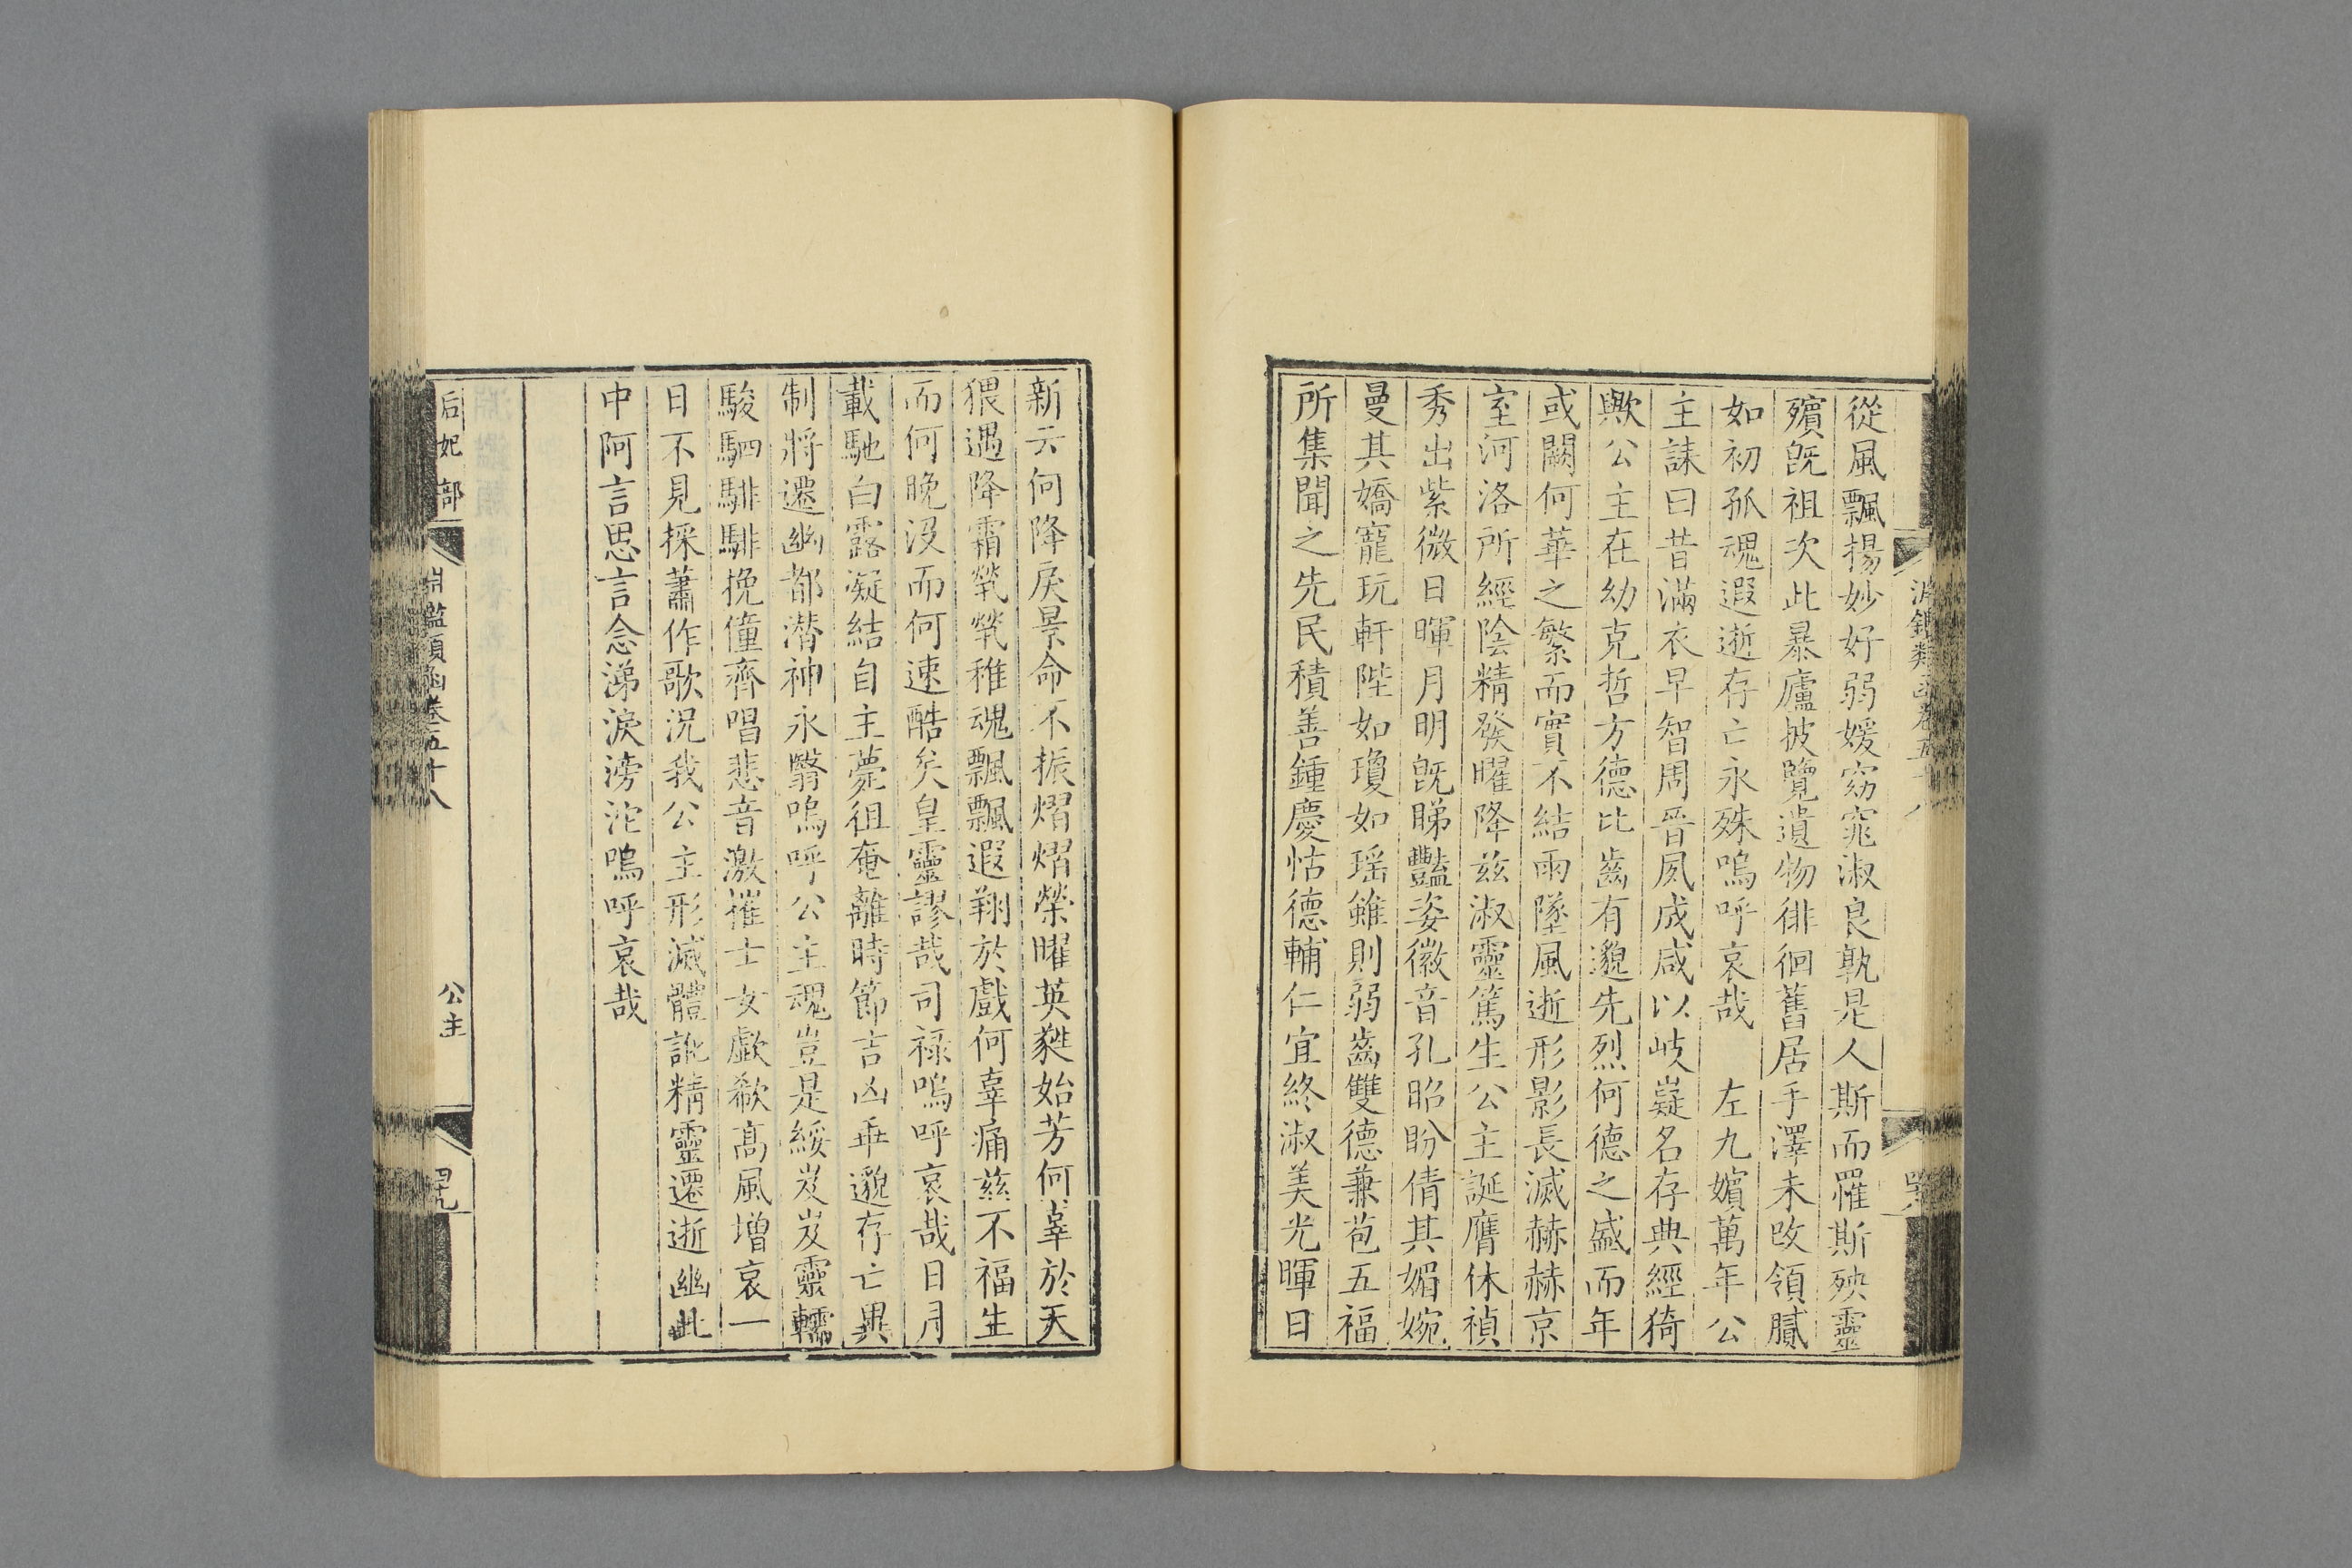 從風飄揚妙好弱媛窈窕淑良孰是人斯而罹斯殃靈
殯旣祖次此暴廬披覽遺物徘徊舊居手澤未改領膩
如初孤魂遐逝存亡永殊嗚呼哀哉　左九嬪萬年公
主誄曰昔滿衣早智周晉夙成咸以岐嶷名存典經猗
歟公主在幼克哲方德比齒有邈先烈何德之盛而年
或闕何華之繁而實不結雨墜風逝形影長滅赫赫京
室河洛所經陰精發曜降兹淑靈篤生公主誕膺休禎
秀出紫微日暉月明旣睇豔姿徽音孔昭盼倩其媚婉
曼其嬌寵玩軒陛如瓊如瑶雖則弱齒雙德兼苞五福
所集聞之先民積善鍾慶怙德輔仁宜終淑美光暉日
新云何降戾景命不振熠熠榮曜英蕤始芳何辜於天
猥遇降霜煢煢稚魂飄飄遐翔於戲何辜痛兹不福生
而何晚没而何速酷矣皇靈謬哉司禄嗚呼哀哉日月
載馳白露凝結自主薨徂奄離時節吉凶乖邈存亡異
制將遷幽都潛神永翳嗚呼公主魂豈是綏岌岌靈轜
駿駟騑騑挽僮齊唱悲音激摧士女歔欷高風增哀一
日不見採蕭作歌況我公主形滅體訛精靈遷逝幽此
中阿言思言念涕淚滂沱嗚呼哀哉
后妃部
淵鑑類函卷五十八
公主